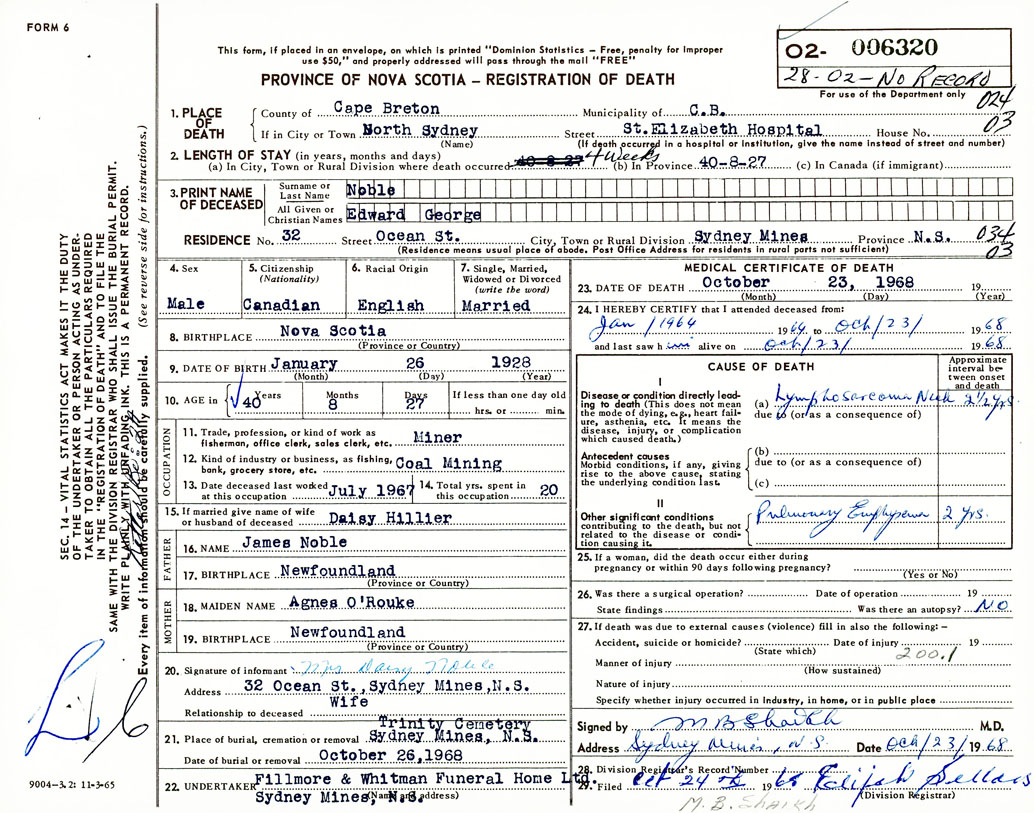 FORM 6
This form, if placed in an envelope, on which is printed "Dominion Statistics – Free, penalty for improper
use $50," and properly addressed will pass through the mail "FREE"
PROVINCE OF NOVA SCOTIA – REGISTRATION OF DEATH
O2- 006320
28-02-NO RECORD
For use of the Department only
024
03
1. PLACE OF DEATH
County of Cape Breton Municipality of C.B.
If in City or Town North Sydney Street St.Elizabeth Hospital House No.
(Name) (If death occurred in a hospital or institution, give the name instead of street and number)
2. LENGTH OF STAY (in years, months and days)
(a) In City, Town or Rural Division where death occurred 40-8-27 4 Weeks (b) In Province 40-8-27 (c) In Canada (if immigrant)
3. PRINT NAME OF DECEASED
Surname or Last Name Noble
All Given or Christian Names Edward George
RESIDENCE No. 32 Street Ocean St. City, Town or Rural Division Sydney Mines Province N.S.
034
03
(Residence means usual place of abode. Post Office Address for residents in rural parts not sufficient)
4. Sex
Male
5. Citizenship
(Nationality)
Canadian
6. Racial Origin
English
7. Single, Married,
Widowed or Divorced
(write the word)
Married
8. BIRTHPLACE Nova Scotia
(Province or Country)
9. DATE OF BIRTH January 26 1928
(Month) (Day) (Year)
10. AGE in Years Months Days If less than one day old
40 8 27 hrs. or min.
OCCUPATION
11. Trade, profession, or kind of work as
fisherman, office clerk, sales clerk, etc. Miner
12. Kind of industry or business, as fishing,
bank, grocery store, etc. Coal Mining
13. Date deceased last worked
at this occupation July 1967
14. Total yrs. spent in
this occupation 20
15. If married give name of wife
or husband of deceased Daisy Hillier
FATHER
16. NAME James Noble
17. BIRTHPLACE Newfoundland
(Province or Country)
MOTHER
18. MAIDEN NAME Agnes O'Rouke
19. BIRTHPLACE Newfoundland
(Province or Country)
20. Signature of informant Mrs Daisy Noble
Address 32 Ocean St.,Sydney Mines,N.S.
Relationship to deceased Wife
21. Place of burial, cremation or removal Trinity Cemetery
Sydney Mines, N.S.
Date of burial or removal October 26,1968
22. UNDERTAKER Fillmore & Whitman Funeral Home Ltd.
Sydney Mines, N.S.
(Name and address)
MEDICAL CERTIFICATE OF DEATH
23. DATE OF DEATH October 23, 1968 19
(Month) (Day) (Year)
24. I HEREBY CERTIFY that I attended deceased from:
Jan /1964 1964 to Oct/23/ 1968
and last saw him alive on Oct/23/ 1968
CAUSE OF DEATH
Approximate
interval be-
tween onset
and death
I
Disease or condition directly lead-
ing to death (This does not mean
the mode of dying, e.g., heart fail-
ure, asthenia, etc. It means the
disease, injury, or complication
which caused death.)
(a) Lymphosarcoma Neck 2 1/2 yrs.
due to (or as a consequence of)
Antecedent causes
Morbid conditions, if any, giving
rise to the above cause, stating
the underlying condition last.
(b)
due to (or as a consequence of)
(c)
II
Other significant conditions
contributing to the death, but not
related to the disease or condi-
tion causing it.
Pulmonary Emphysema 2 yrs.
25. If a woman, did the death occur either during
pregnancy or within 90 days following pregnancy?
(Yes or No)
26. Was there a surgical operation? Date of operation 19
State findings Was there an autopsy? NO
27. If death was due to external causes (violence) fill in also the following: –
Accident, suicide or homicide? Date of injury 19
(State which) 200.1
Manner of injury
(How sustained)
Nature of injury
Specify whether injury occurred in industry, in home, or in public place
Signed by M B Shaikh M.D.
Address Sydney Mines, N.S. Date Oct/23/1968
28. Division Registrar's Record Number
29. Filed Oct 24th 1968 Elijah Sellars
(Division Registrar)
M.B. Shaikh
SEC. 14 – VITAL STATISTICS ACT MAKES IT THE DUTY
OF THE UNDERTAKER OR PERSON ACTING AS UNDER-
TAKER TO OBTAIN ALL THE PARTICULARS REQUIRED
IN THE "REGISTRATION OF DEATH" AND TO FILE THE
SAME WITH THE DIVISION REGISTRAR WHO SHALL ISSUE THE BURIAL PERMIT.
WRITE PLAINLY WITH UNFADING INK. THIS IS A PERMANENT RECORD.
Every item of information should be carefully supplied. (See reverse side for instructions.)
9004–3.2: 11-3-65